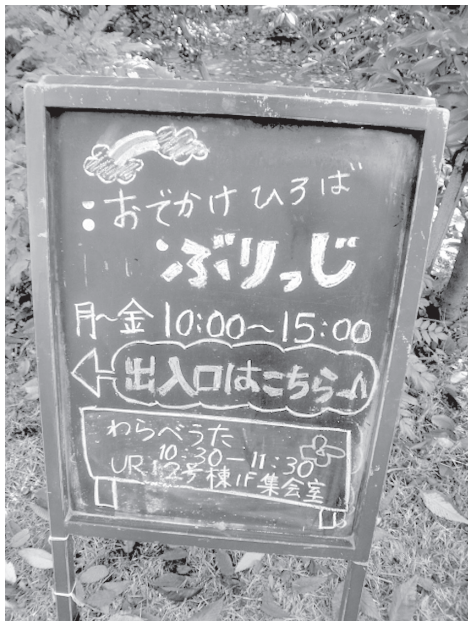 おでかけひろば
ぶりっじ
月〜金 10:00〜15:00
出入口はこちら♪
わらべうた
10:30−11:30
UR12号棟1F集会室